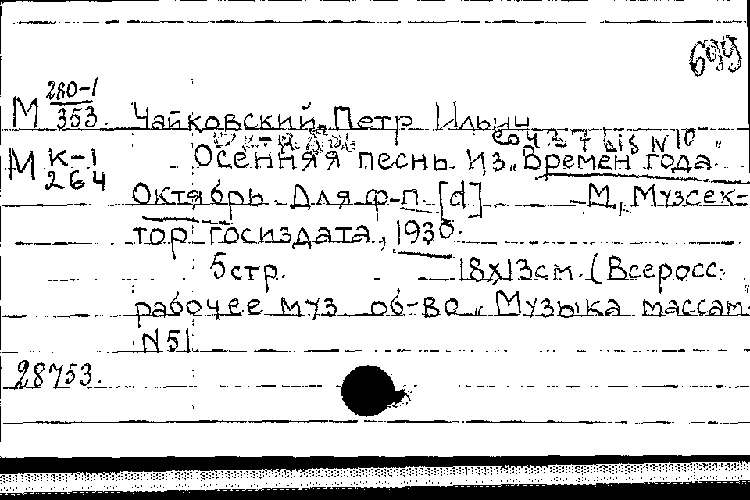 699
М 280-1/353. Чайковский, Петр Ильич
Октябрь со 37 bis N10
М К-1/264 Осенняя песнь. Из „Времен года"
Октябрь. Для ф-п. [d] М., Музсек=
тор госиздата, 1930.
5 стр. 18x13 см. (Всеросс.
рабочее муз. об-во „Музыка массам
N 51
28753.